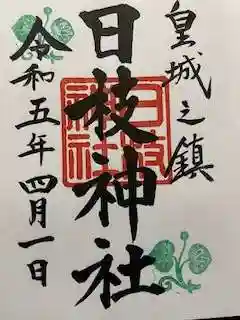 皇城之鎮
日枝神社
令和五年四月一日
日枝
神社